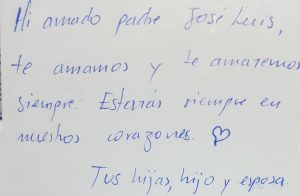 Mi amado padre José Luis,
te amamos y te amaremos
siempre. Estarás siempre en
nuestros corazones. ♡
Tus hijas, hijo y esposa.